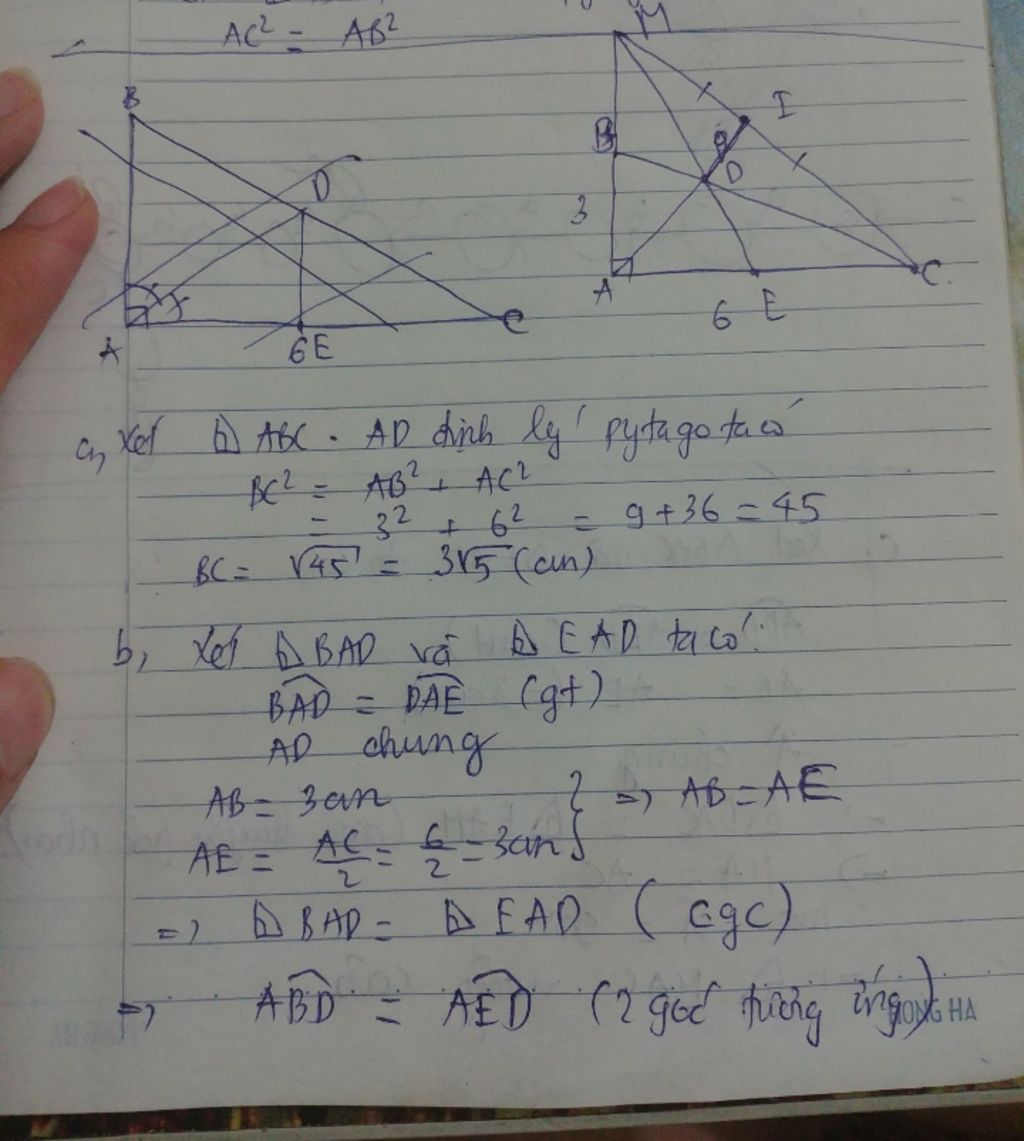 AC² = AB²
M
B
I
D
B
D
3
A
C
A
6 E
C
6 E
a, Xét ⊿ ABC . AD định lý pytago ta có
BC² = AB² + AC²
= 3² + 6² = 9 + 36 = 45
BC = √45 = 3√5 (cm)
b, Xét ⊿ BAD và ⊿ EAD ta có:
BAD = DAE (gt)
AD chung
AB = 3cm
AE = AC/2 = 6/2 = 3cm } => AB = AE
=> ⊿ BAD = ⊿ EAD (cgc)
=> ABD = AED (2 góc tương ứng)
HONG HA